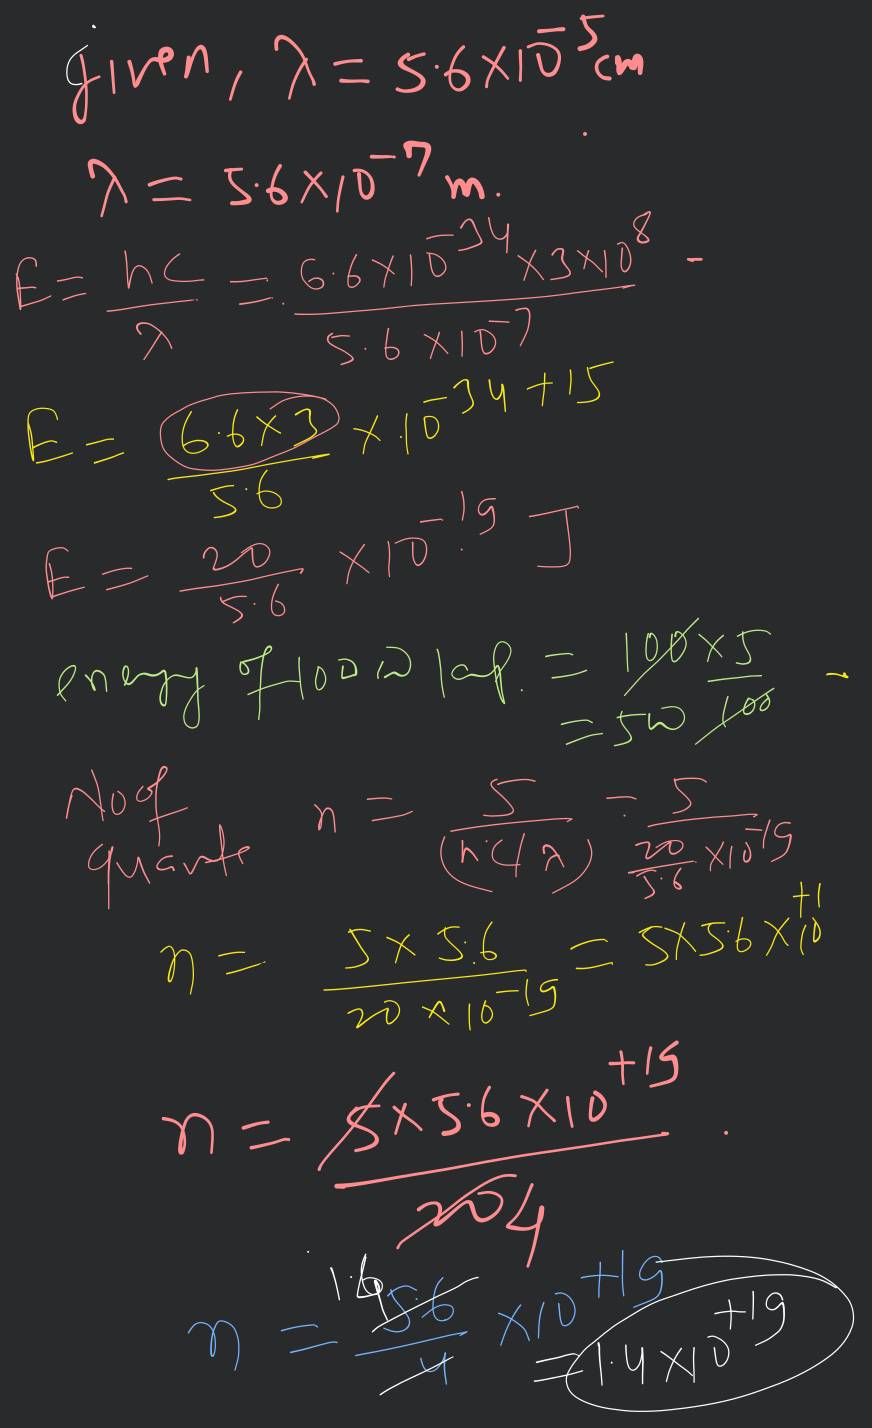 given, λ = 5.6×10⁻⁵ cm
λ = 5.6×10⁻⁷ m.
E = hc/λ = 6.6×10⁻³⁴ × 3×10⁸ / 5.6×10⁻⁷
E = 6.6×3 / 5.6 × 10⁻³⁴⁺¹⁵
E = 20/5.6 × 10⁻¹⁹ J
energy of 100 W lap. = 100×5/100
= 5W
No of quante n = 5/(hc/λ) = 5 / 20/5.6 ×10⁻¹⁹
n = 5×5.6 / 20×10⁻¹⁹ = 5×5.6×10⁺¹
n = 5×5.6×10⁺¹⁹ / 20 4
n = 5.6/4 ×10⁺¹⁹ = 1.4×10⁺¹⁹